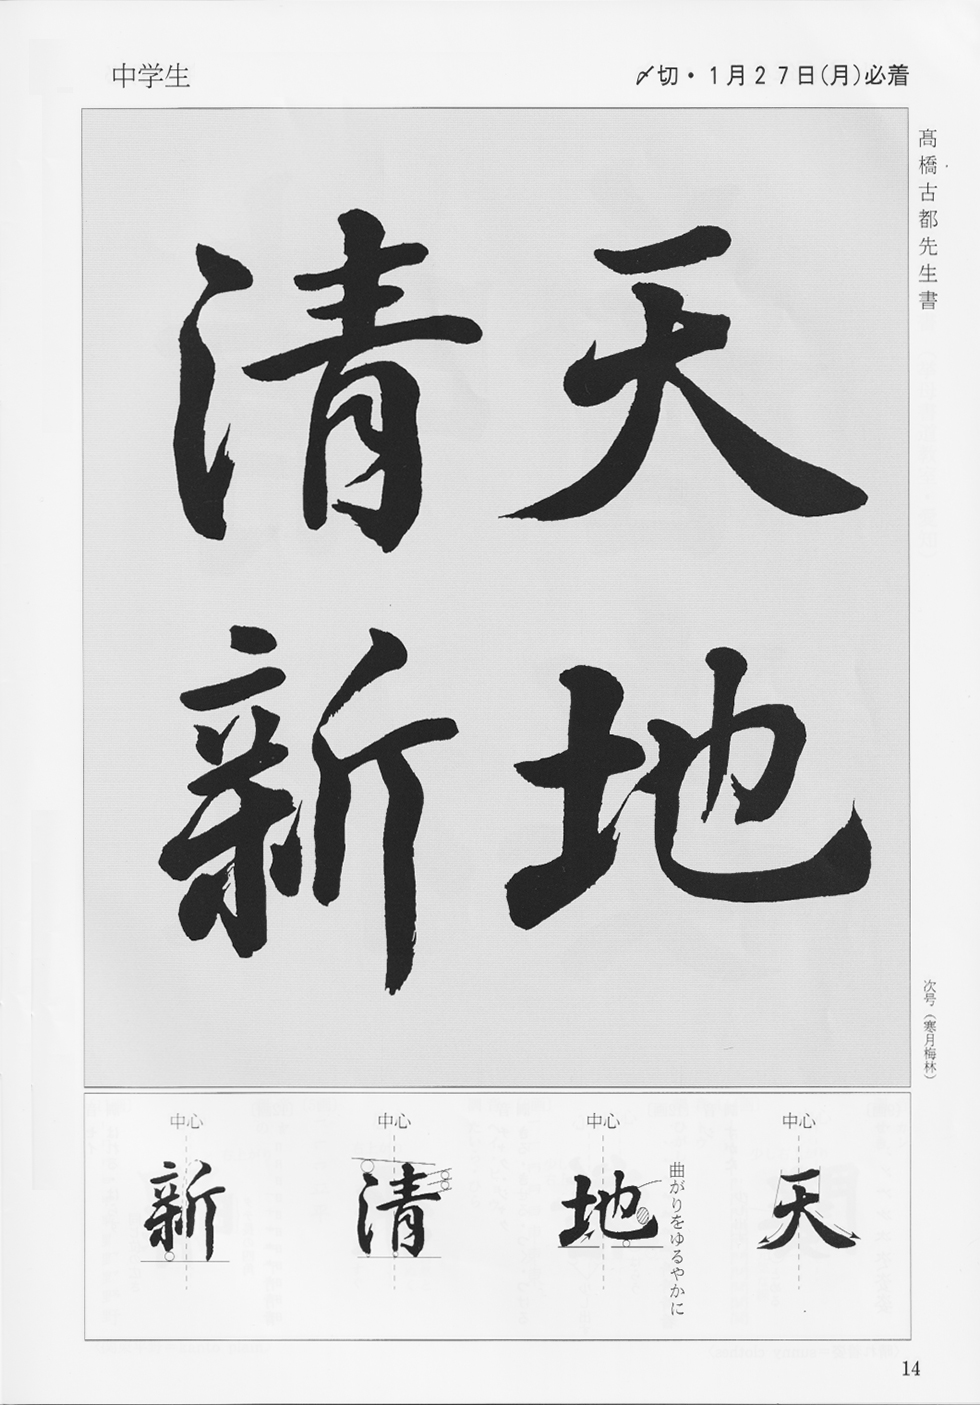 中学生
〆切・1月27日(月)必着
髙橋古都先生書
天地
清新
次号（寒月梅林）
中心
天
中心
地
曲がりをゆるやかに
中心
清
中心
新
14